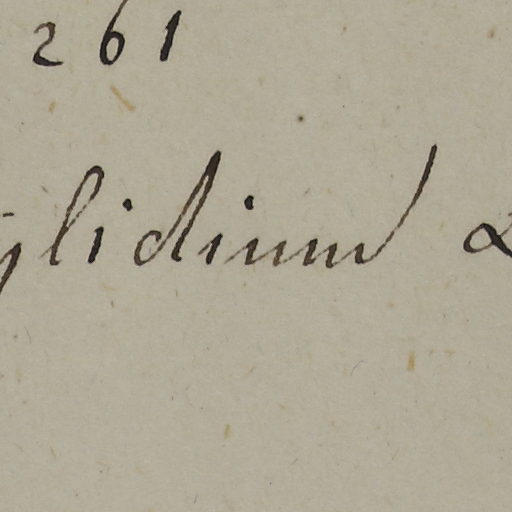 261
ylidium